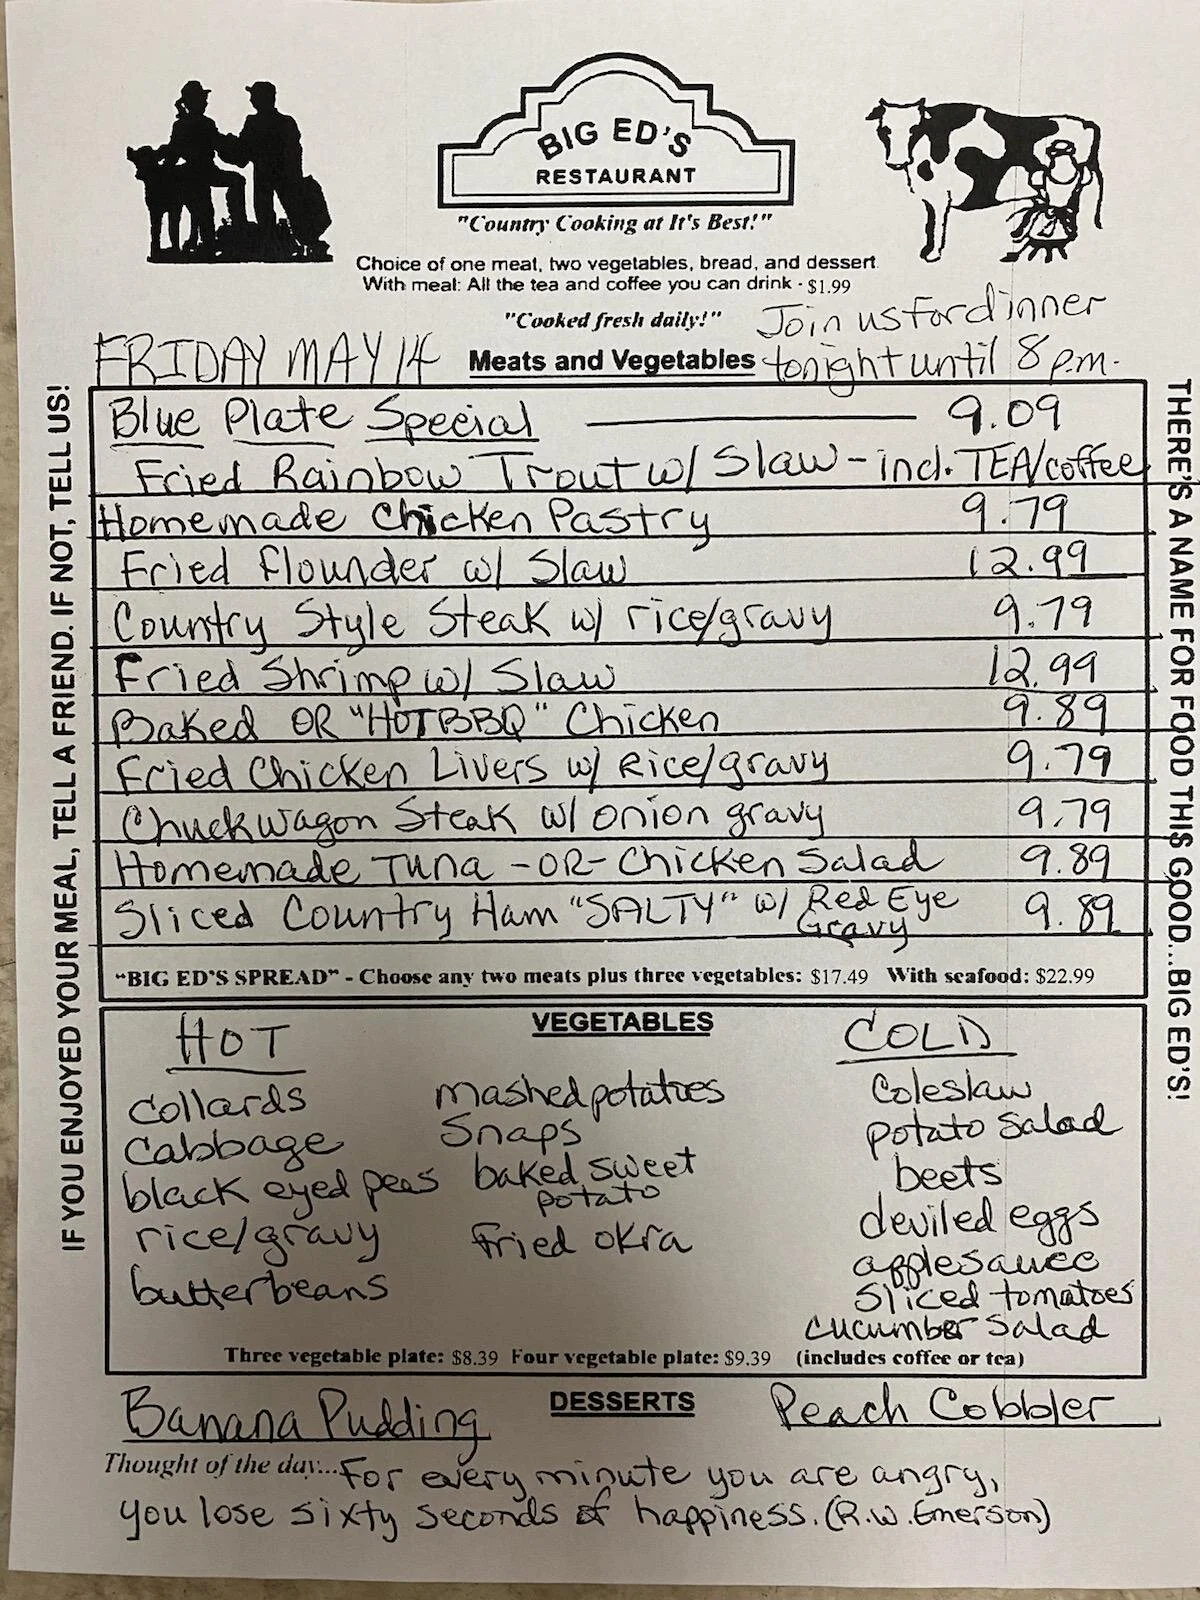 BIG ED'S
RESTAURANT
"Country Cooking at It's Best!"
Choice of one meat, two vegetables, bread, and dessert.
With meal: All the tea and coffee you can drink - $1.99
"Cooked fresh daily!"
Join us for dinner
tonight until 8 p.m.
FRIDAY MAY 14
Meats and Vegetables
IF YOU ENJOYED YOUR MEAL, TELL A FRIEND. IF NOT, TELL US!
Blue Plate Special 9.09
Fried Rainbow Trout w/ Slaw - incl. TEA/coffee
Homemade Chicken Pastry 9.79
Fried Flounder w/ Slaw 12.99
Country Style Steak w/ rice/gravy 9.79
Fried Shrimp w/ Slaw 12.99
Baked OR "HOT BBQ" Chicken 9.89
Fried Chicken Livers w/ Rice/gravy 9.79
Chuckwagon Steak w/ onion gravy 9.79
Homemade Tuna -OR- Chicken Salad 9.89
Sliced Country Ham "SALTY" w/ Red Eye Gravy 9.89
"BIG ED'S SPREAD" - Choose any two meats plus three vegetables: $17.49 With seafood: $22.99
THERE'S A NAME FOR FOOD THIS GOOD...BIG ED'S!
VEGETABLES
HOT
collards
cabbage
black eyed peas
rice/gravy
butterbeans
mashed potatoes
Snaps
baked sweet
potato
fried okra
COLD
Coleslaw
potato salad
beets
deviled eggs
applesauce
sliced tomatoes
cucumber salad
Three vegetable plate: $8.39 Four vegetable plate: $9.39 (includes coffee or tea)
DESSERTS
Banana Pudding
Peach Cobbler
Thought of the day... For every minute you are angry,
you lose sixty seconds of happiness. (R.W. Emerson)